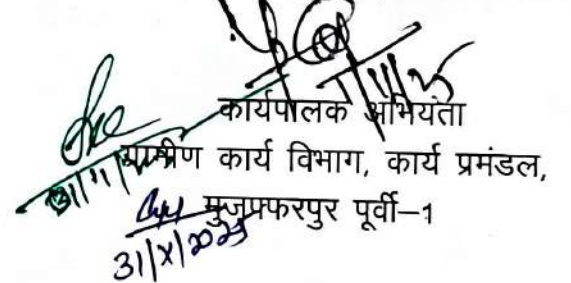 कार्यपालक अभियंता
ग्रामीण कार्य विभाग, कार्य प्रमंडल,
मुजफ्फरपुर पूर्वी–1
31/X/2025